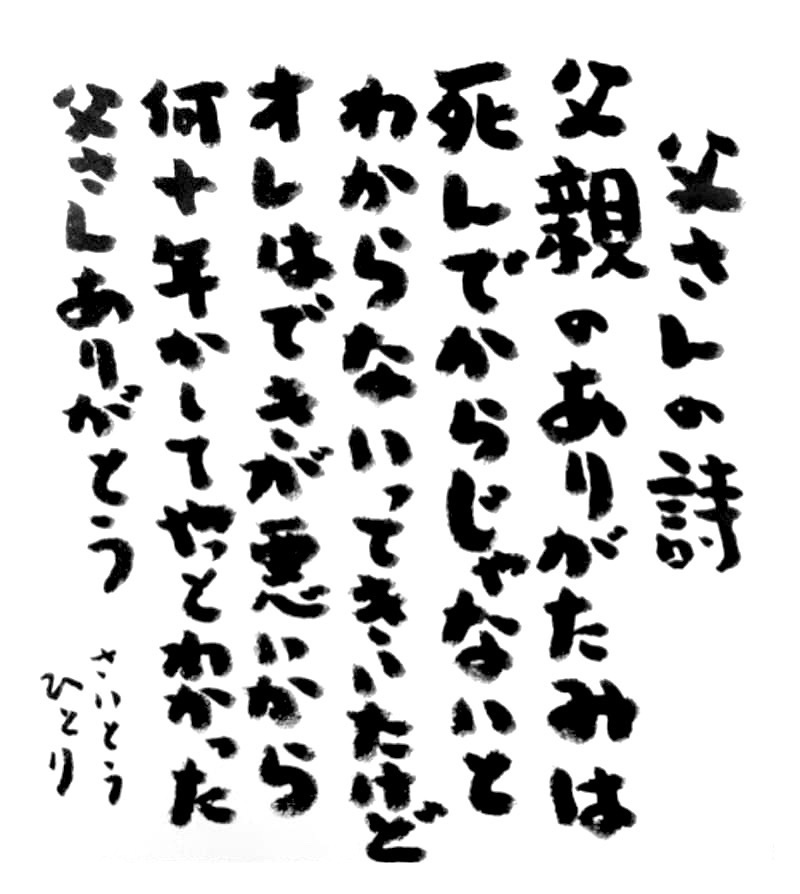 父さんの詩
父親のありがたみは
死んでからじゃないと
わからないってきいたけど
オレはできが悪いから
何十年かしてやっとわかった
父さんありがとう
さいとう
ひとり